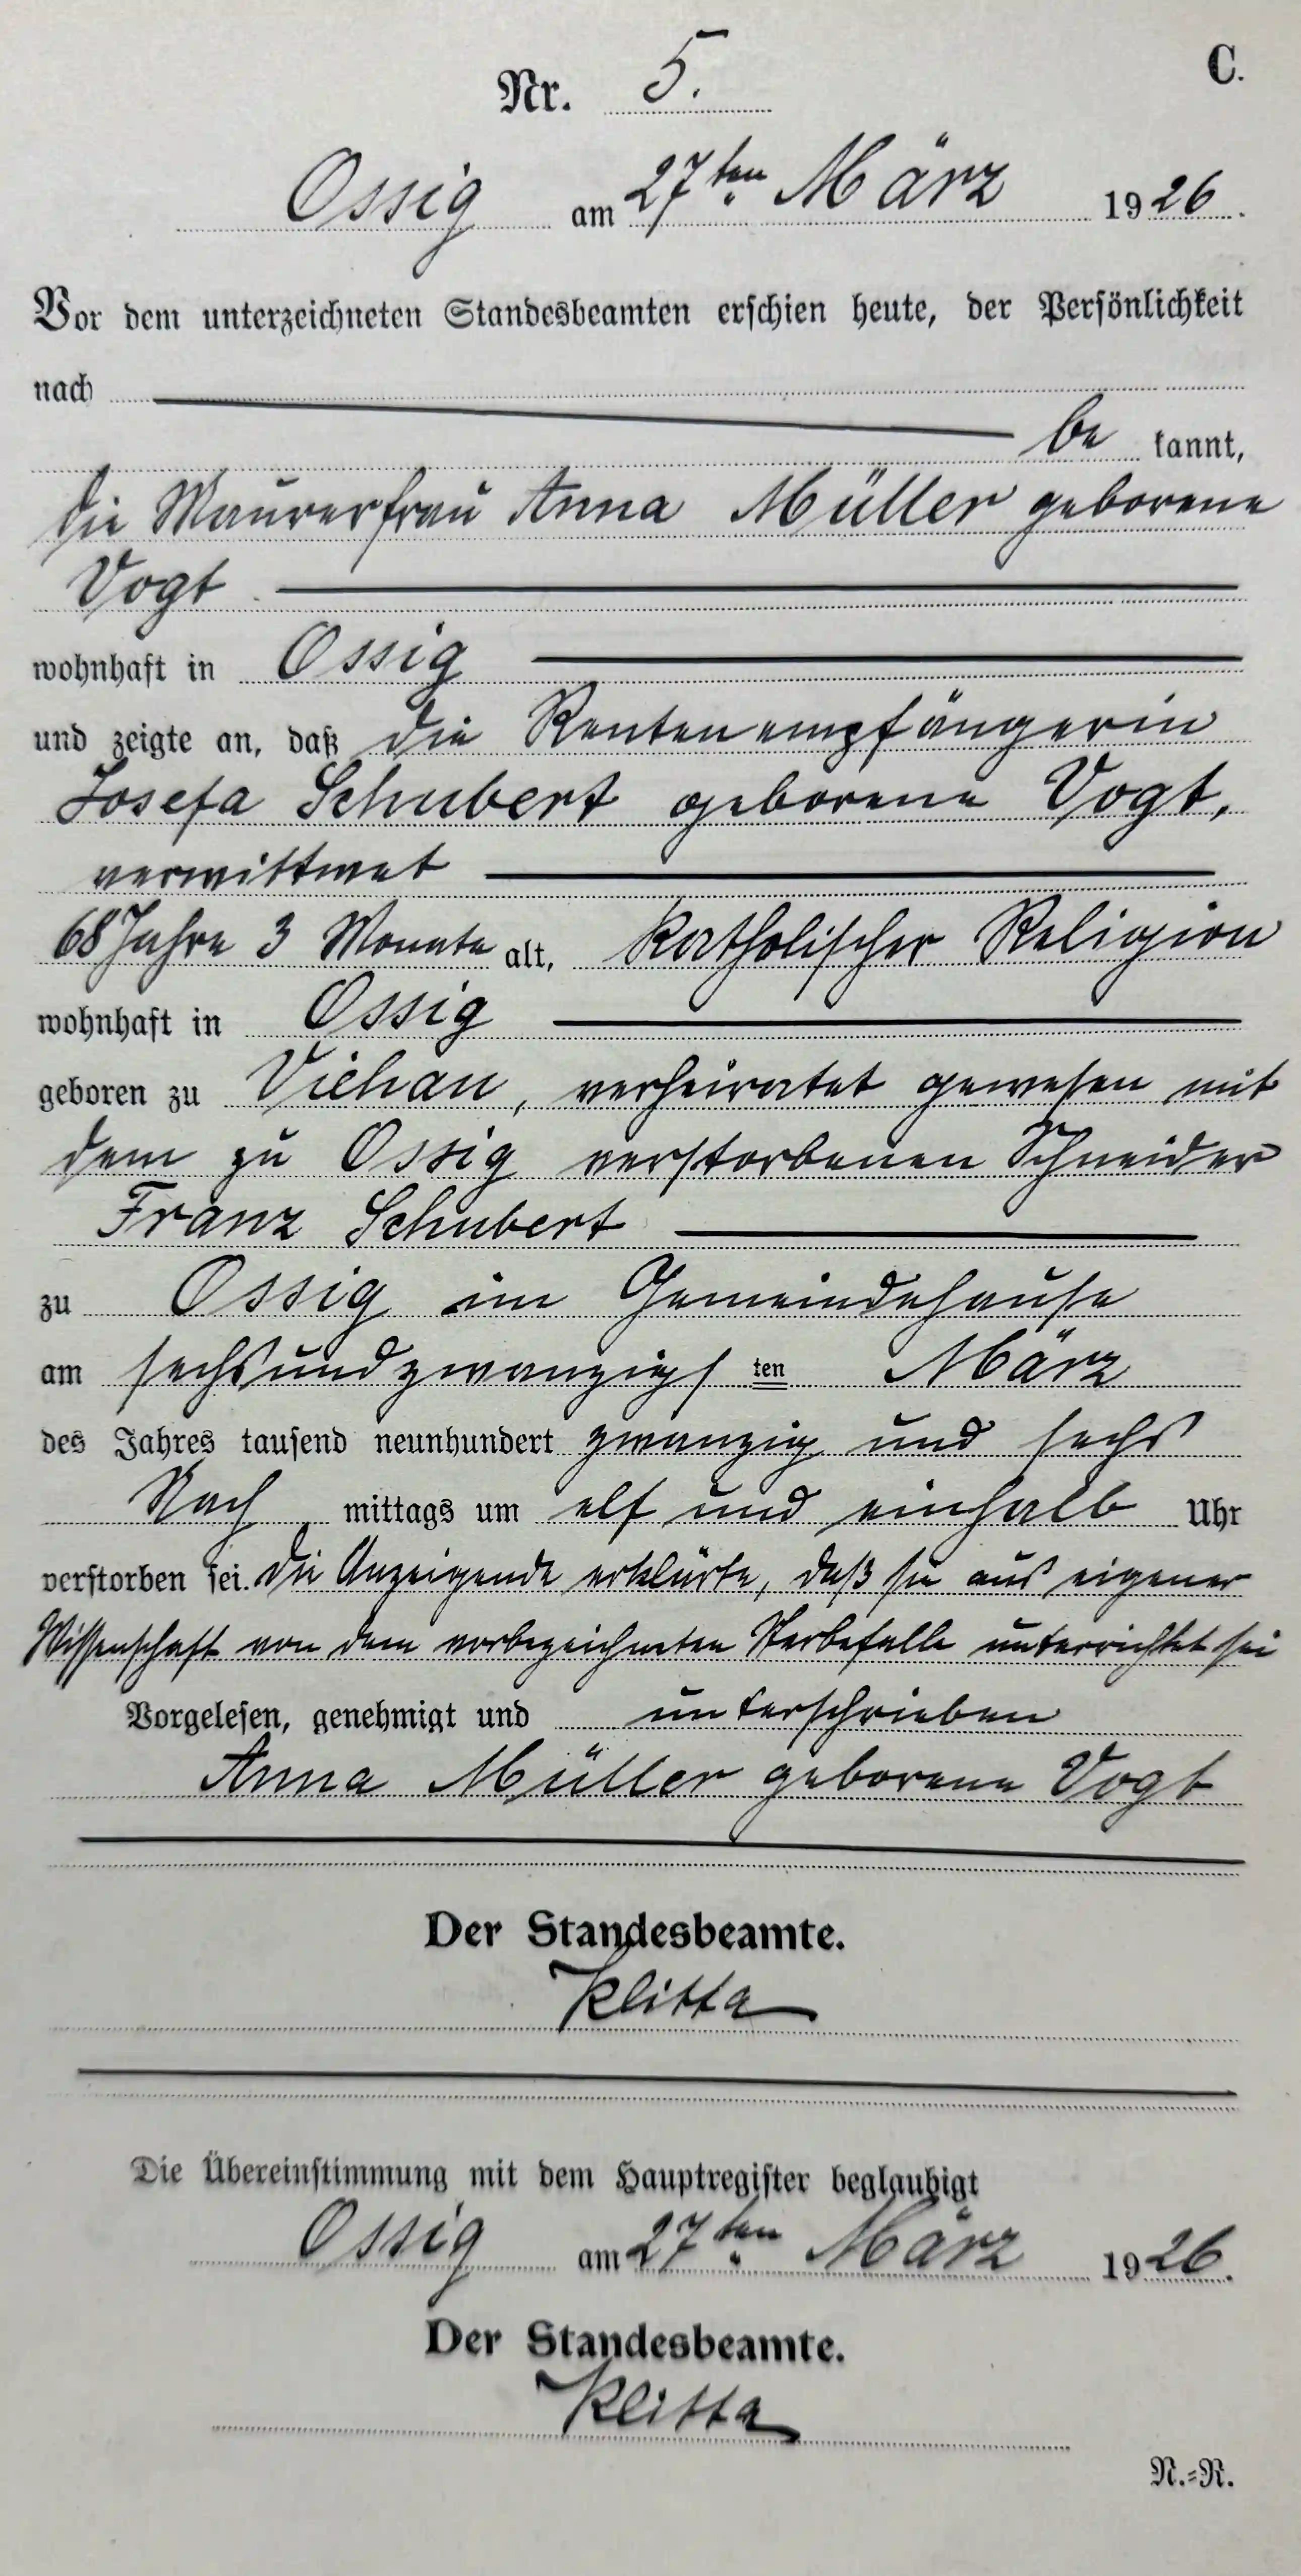 C.
Nr. 5.
Ossig am 27ten März 1926.
Vor dem unterzeichneten Standesbeamten erschien heute, der Persönlichkeit
nach
be kannt,
die Maurerfrau Anna Müller geborene
Vogt
wohnhaft in Ossig
und zeigte an, daß die Rentenempfängerin
Josefa Schubert geborene Vogt,
verwittwet
68 Jahre 3 Monate alt, katholischer Religion
wohnhaft in Ossig
geboren zu Viehau, verheiratet gewesen mit
dem zu Ossig verstorbenen Schneider
Franz Schubert
zu Ossig im Gemeindehause
am sechsundzwanzigs ten März
des Jahres tausend neunhundert zwanzig und sechs
Nach mittags um elf und einhalb Uhr
verstorben sei. Die Anzeigende erklärte, daß sie aus eigener
Wissenschaft von dem vorbezeichneten Sterbefalle unterrichtet sei
Vorgelesen, genehmigt und unterschrieben
Anna Müller geborene Vogt
Der Standesbeamte.
Klitta
Die Übereinstimmung mit dem Hauptregister beglaubigt
Ossig am 27ten März 1926.
Der Standesbeamte.
Klitta
N.=R.